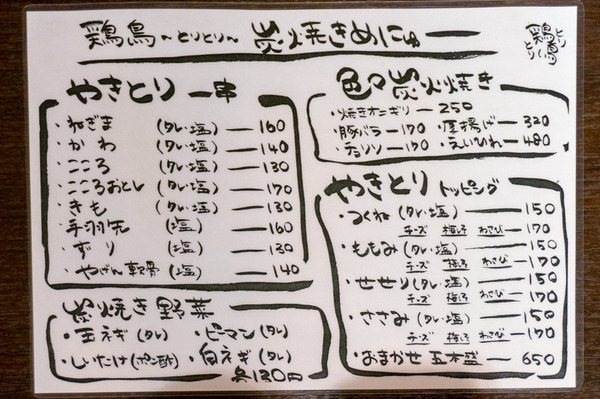 鶏鳥 ~とりとり~ 炭焼きめにゅー
とり
鶏鳥
とり
やきとり 一串
・ねぎま (タレ・塩) ― 160
・かわ (タレ・塩) ― 140
・こころ (タレ・塩) ― 130
・こころおとし (タレ・塩) ― 170
・きも (タレ・塩) ― 130
・手羽先 (塩) ― 160
・ずり (塩) ― 130
・やげん軟骨 (塩) ― 140
炭焼き野菜
・玉ネギ (タレ) ・ピーマン (タレ)
・しいたけ (ポン酢) ・白ネギ (タレ)
各130円
色々炭火焼き
・焼きオニギリ ― 250
・豚バラ ― 170 ・厚揚げ ― 320
・チョリソ ― 170 ・えいひれ ― 480
やきとり トッピング
・つくね (タレ・塩) ― 150
チーズ 梅しそ わさび ― 170
・ももみ (タレ・塩) ― 150
チーズ 梅しそ わさび ― 170
・せせり (タレ・塩) ― 150
チーズ 梅しそ わさび ― 170
・ささみ (タレ・塩) ― 150
チーズ 梅しそ わさび ― 170
・おまかせ 五本盛 ― 650